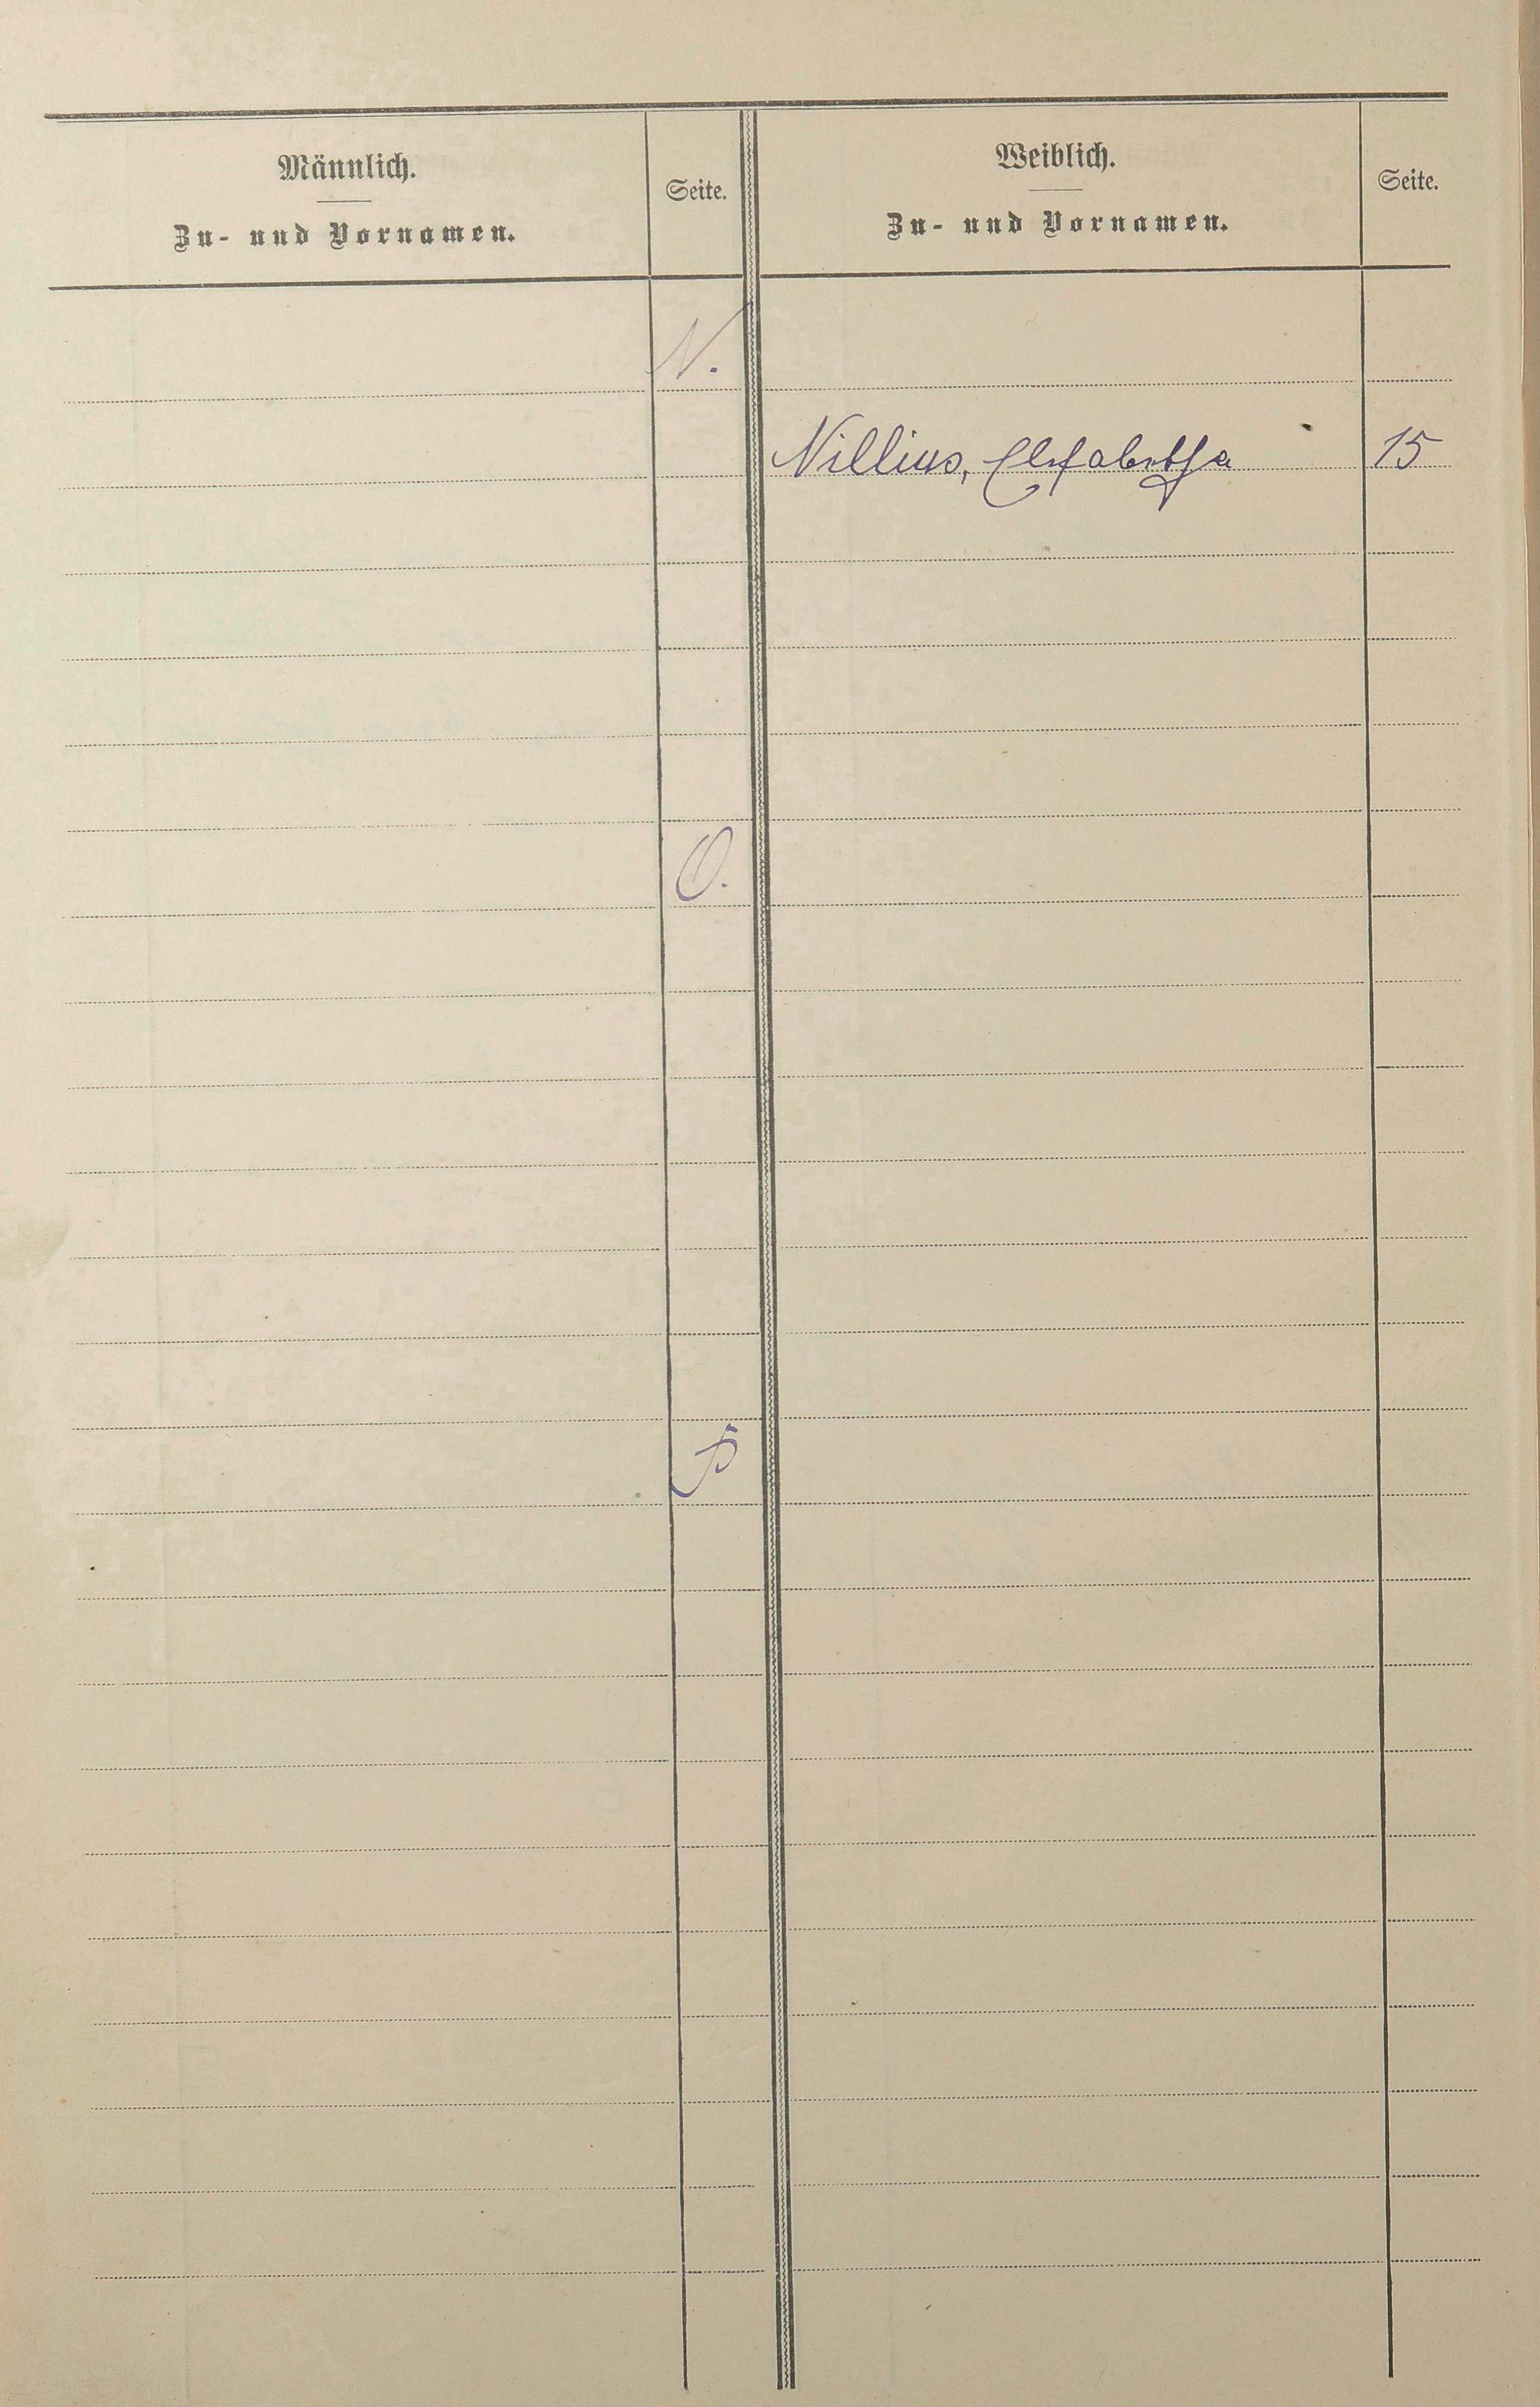 Männlich.
Zu- und Vornamen.
Seite.
Weiblich.
Zu- und Vornamen.
Seite.
N.
Nillius, Elisabetha 15
O.
P